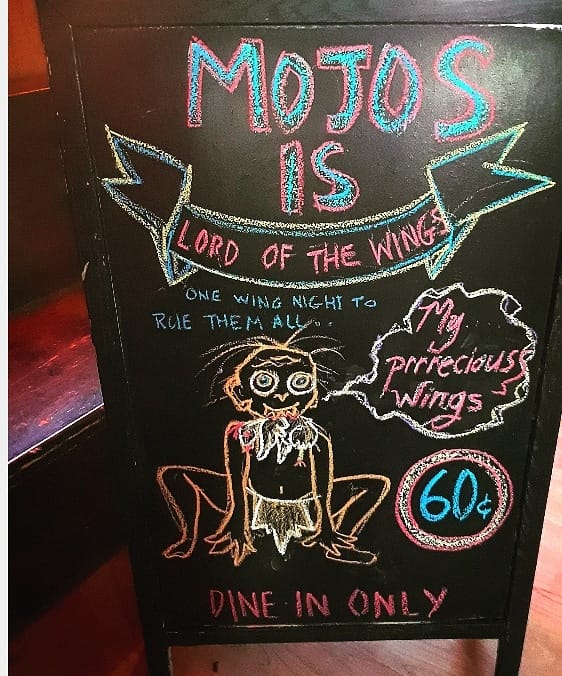 MOJOS
IS
LORD OF THE WINGS
ONE WING NIGHT TO
RULE THEM ALL..
My
prrrecious
Wings
60¢
DINE IN ONLY